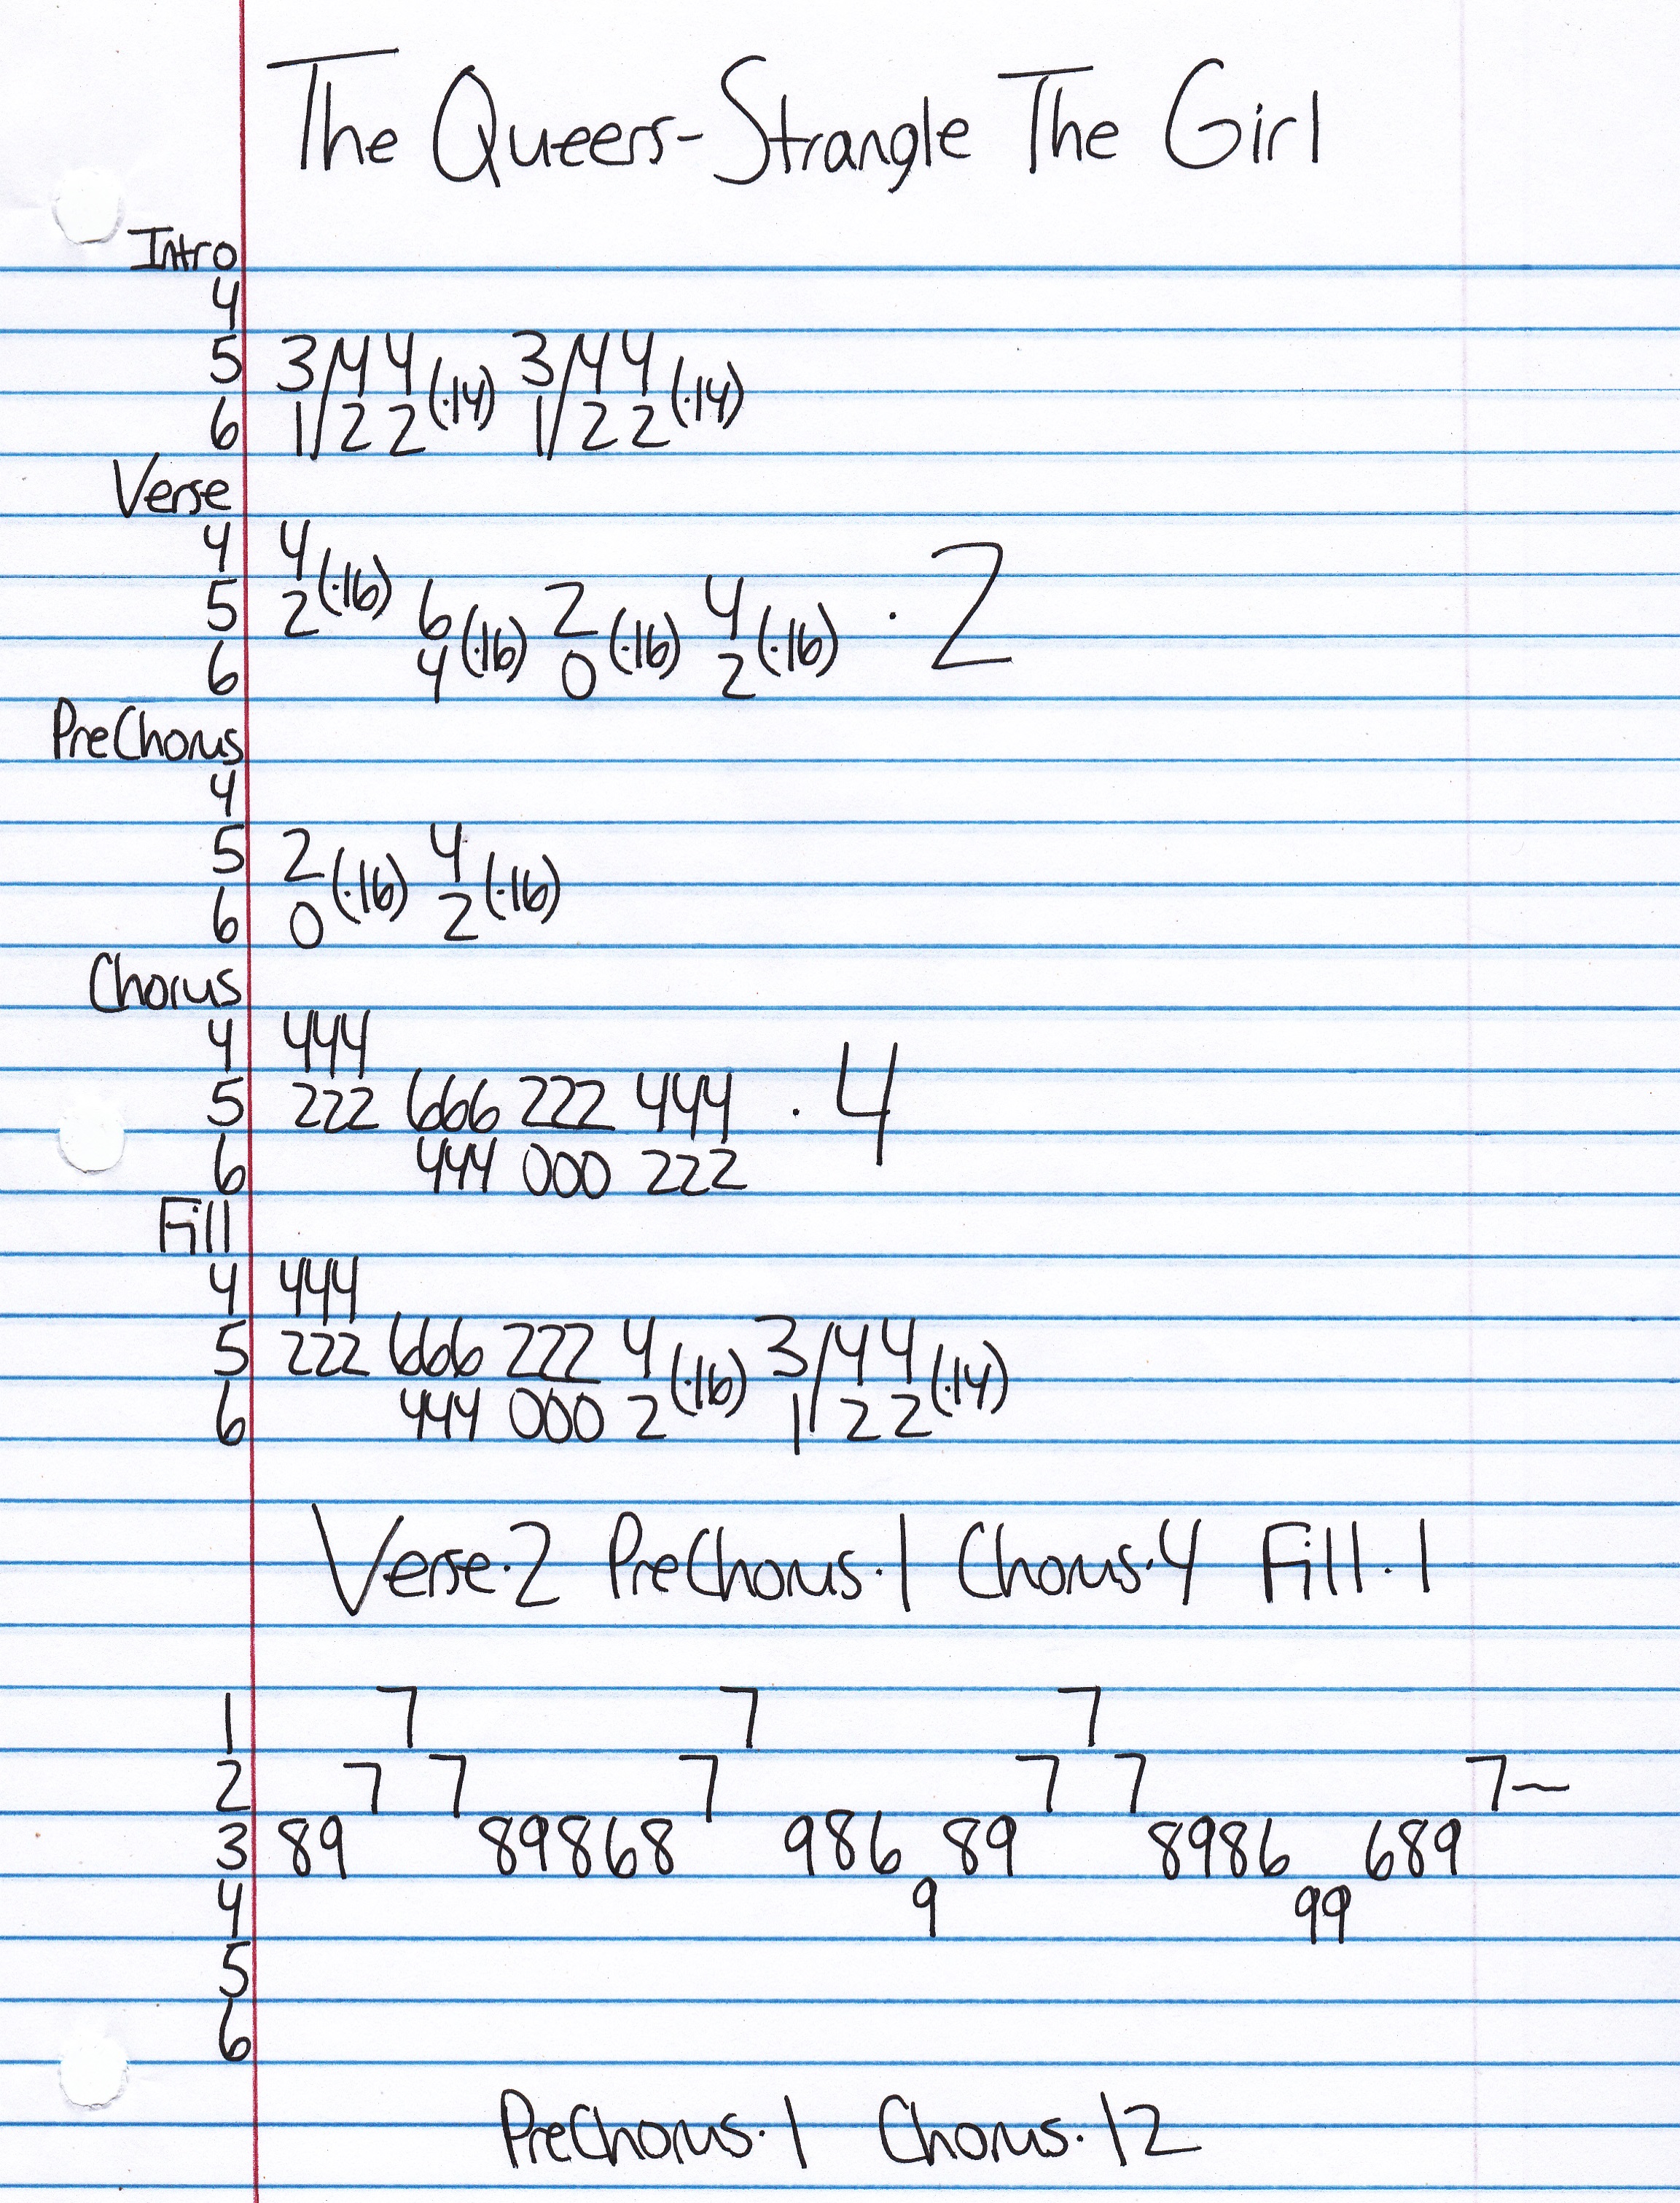 The Queers-Strangle The Girl
Intro
4
5 3/44 (·14) 3/44 (·14)
6 1/22 1/22
Verse
4 4 (·16)
5 2 6 (·16) 2 (·16) 4 (·16) · 2
6 4 0 2
PreChorus
4
5 2 (·16) 4 (·16)
6 0 2
Chorus
4 444
5 222 666 222 444 · 4
6 444 000 222
Fill
4 444
5 222 666 222 4 (·16) 3/44 (·14)
6 444 000 2 1/22
Verse·2 PreChorus·1 Chorus·4 Fill·1
1 7 7 7
2 7 7 7 7 7 7~
3 89 89868 986 89 8986 689
4 9 99
5
6
PreChorus·1 Chorus·12